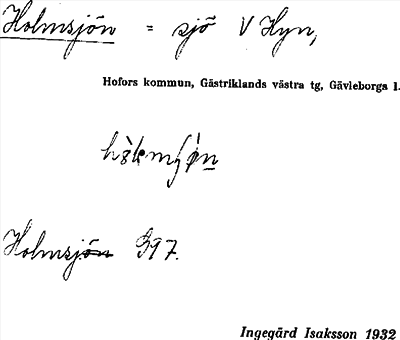 Holmsjön = sjö V Hyn,
Hofors kommun, Gästriklands västra tg, Gävleborgs l.
Holmsjön 397.
Ingegärd Isaksson 1932